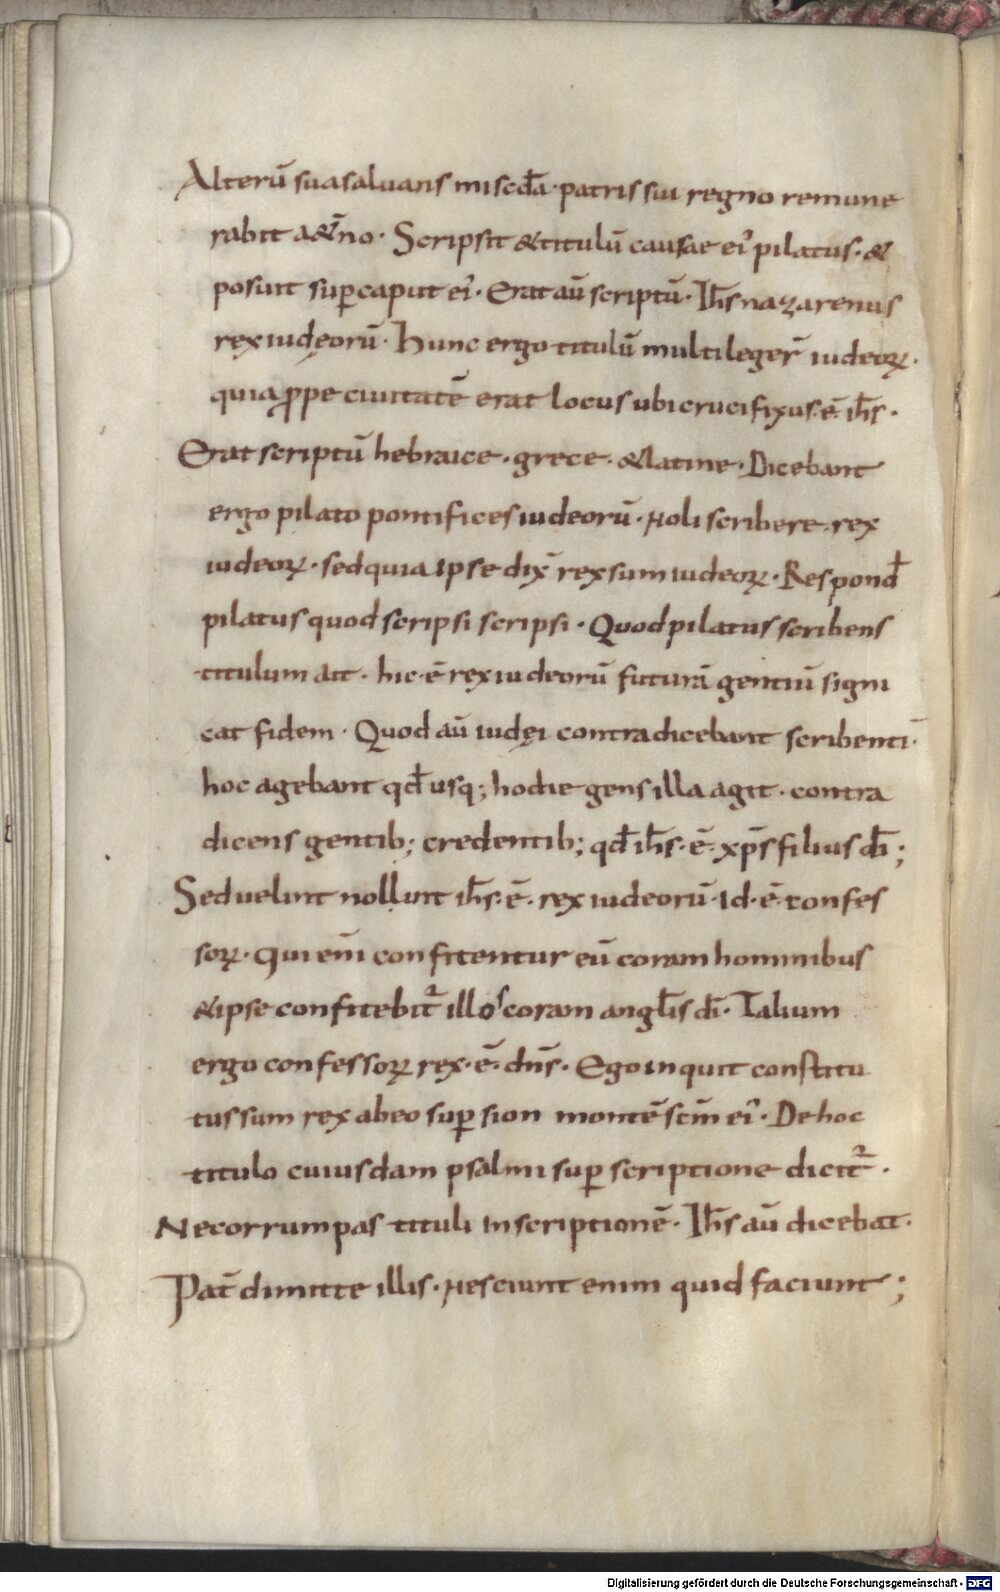 Alterū sua saluans miscd̄a · patris sui regno remune
rabit a&̄no · Scripsit & titulū causae ei᾽ pilatus · &
posuit sup̱ caput ei᾽ · Erat aū scriptū · Ih̄s nazarenus
rex iudęorū · Hunc ergo titulū multi leger̄ iudeoꝝ ·
quia ꝓpe ciuitatē erat locus ubi crucifixus · ē · ih̄s ·
Erat scriptū hebraice · grece · & latine · Dicebant
ergo pilato pontifices iudeorū · Noli scribere rex
iudeoꝝ · sed quia ipse dix̄ rex sum iudeoꝝ · Respond̄
pilatus quod scripsi scripsi · Quod pilatus scribens
titulum ait · hic · ē rex iudeorū futurā gentiū signi
cat fidem · Quod aū iudęi contradicebant scribenti ·
hoc agebant qd̄ usq; hodie gens illa agit · contra
dicens gentib; credentib; qd̄ ih̄s · ē · xp̄s filius dī ;
Sed uelint nollint ih̄s · ē · rex iudeorū · Id · ē · confes
soꝝ · Qui enī confitentur eū coram hominibus
& ipse confitebit᷑ illos coram angl̄is dī · Talium
ergo confessoꝝ rex · ē · dn̄s · Ego inquit constitu
tus sum rex ab eo sup̱ sion montē scm̄ ei᾽ · De hoc
titulo cuiusdam psalmi sup̱scriptione dicit᷑ ·
Ne corrumpas tituli inscriptionē · Ih̄s aū dicebat ·
Pat̄ dimitte illis · Nesciunt enim quid faciunt ;
Digitalisierung gefördert durch die Deutsche Forschungsgemeinschaft - DFG